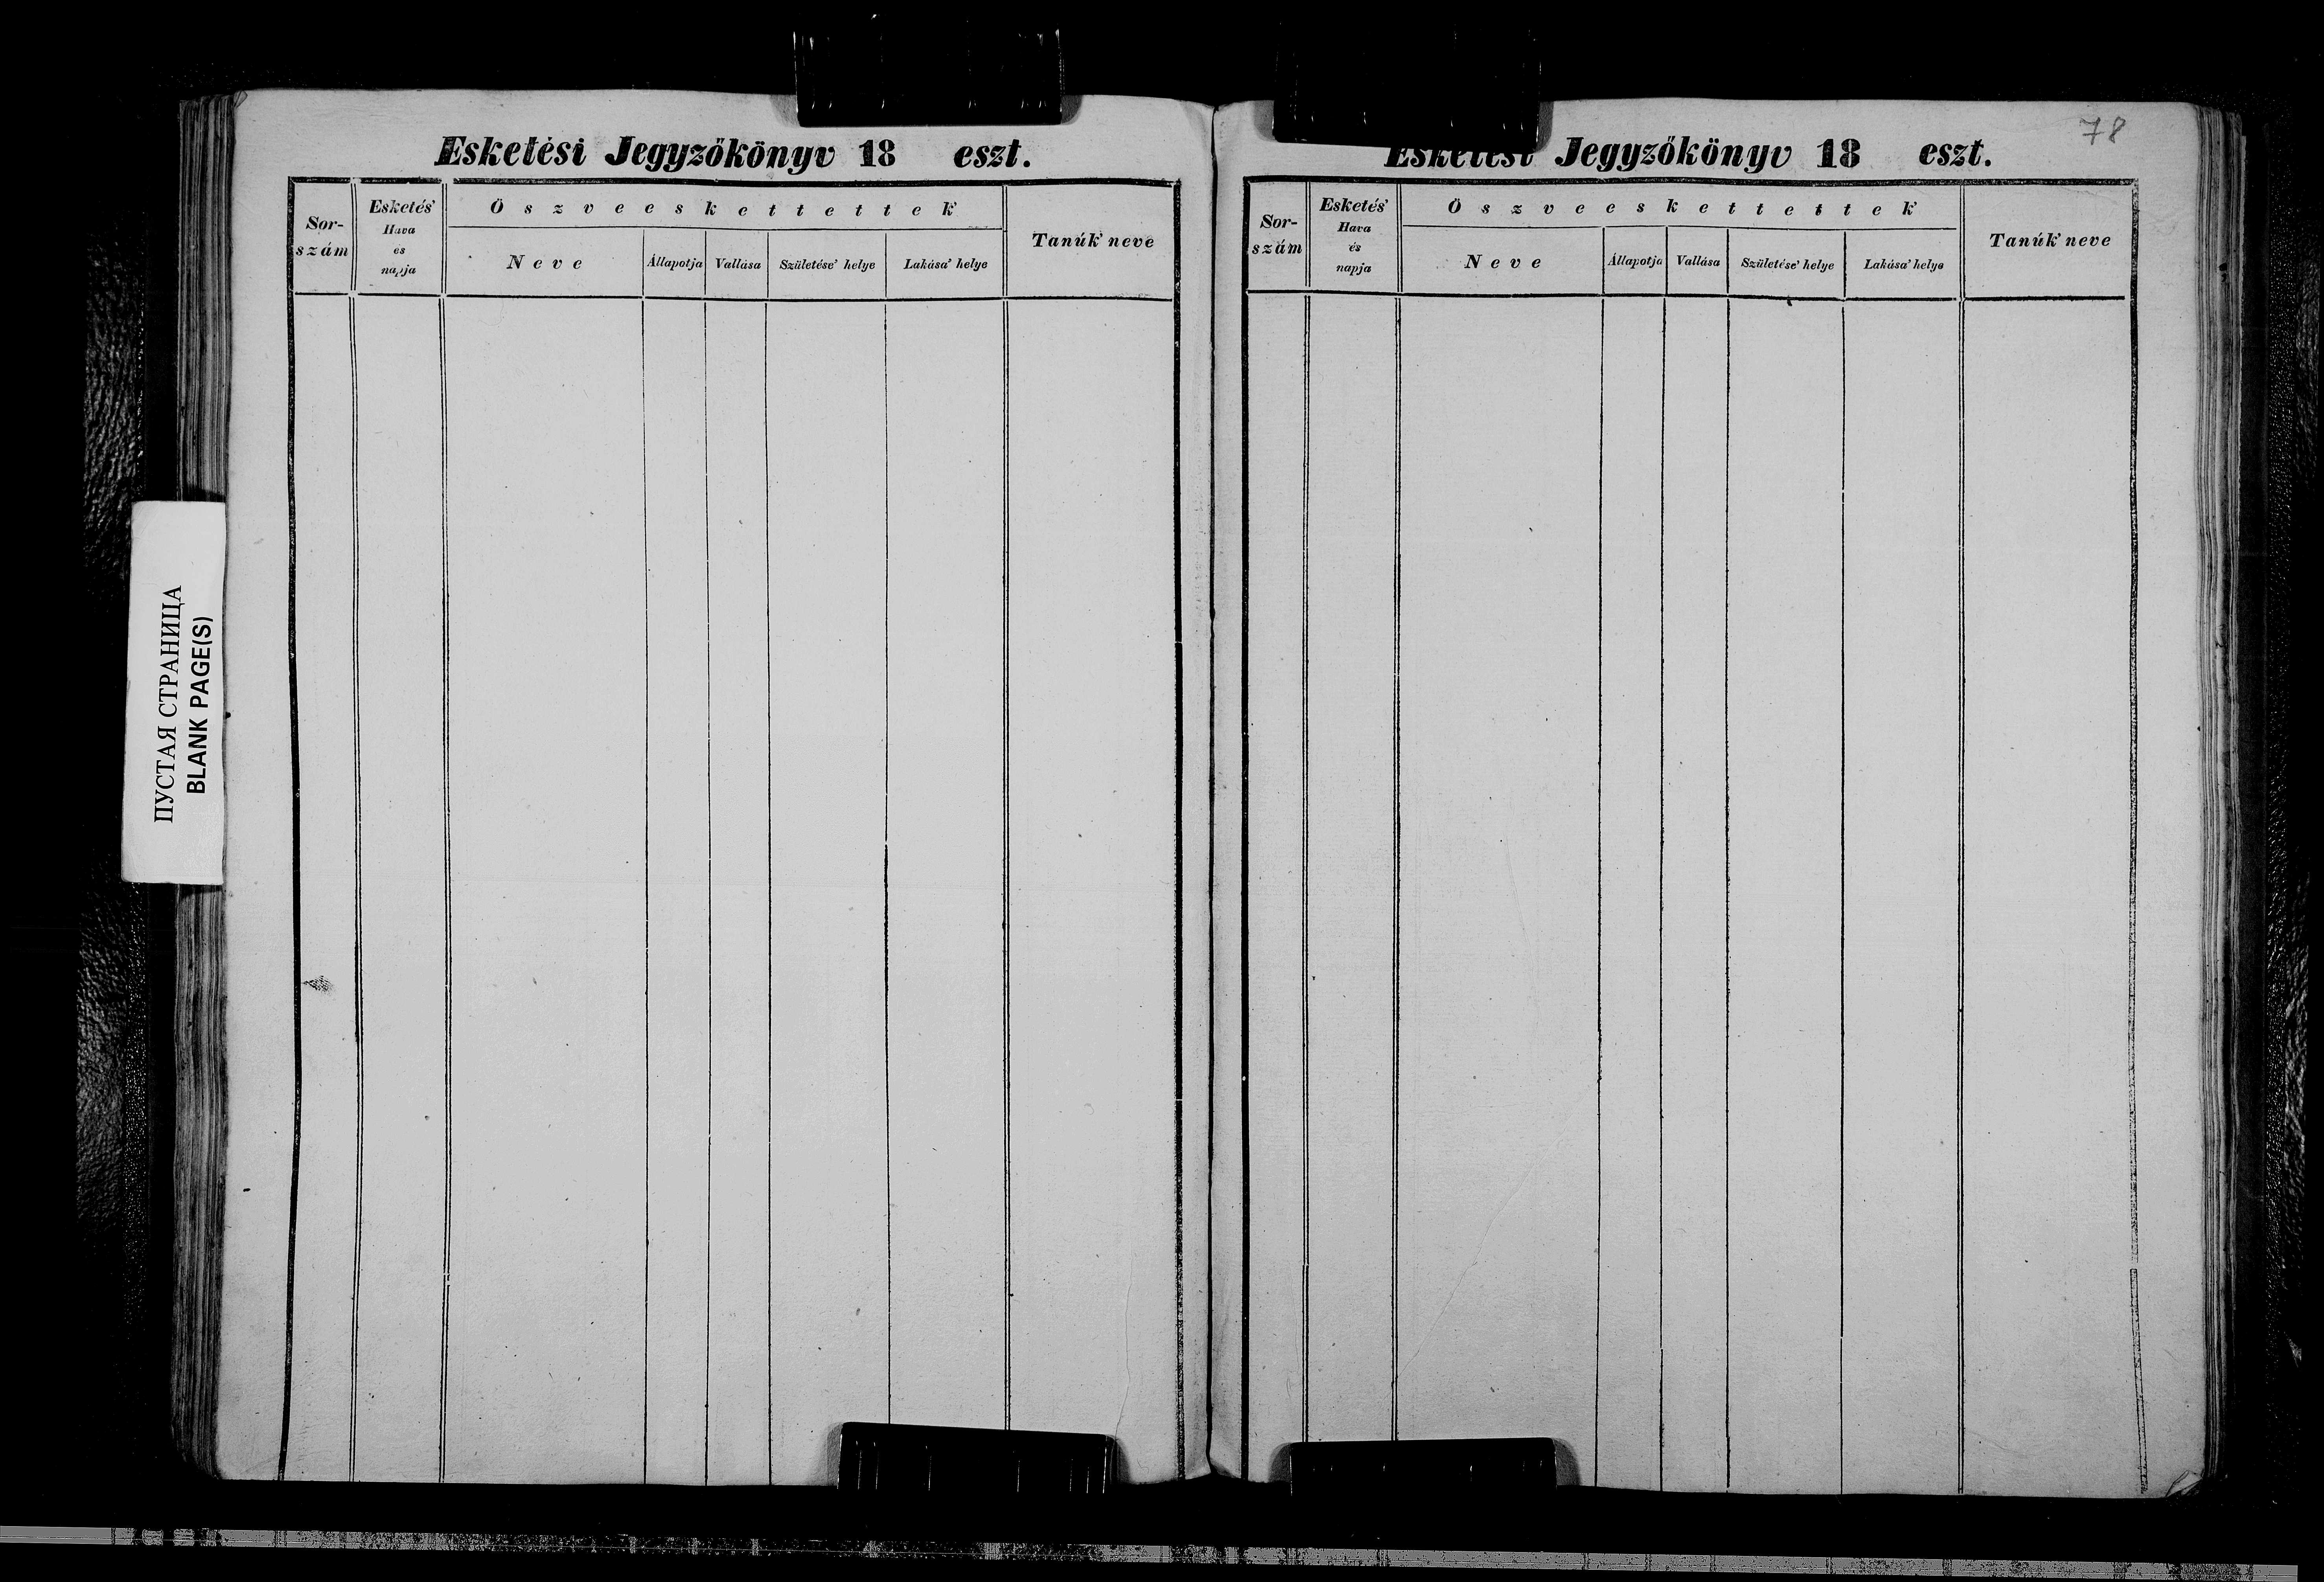 Esketési Jegyzőkönyv 18 eszt.
Sor-
szám
Esketés'
Hava
és
napja
Öszveeskettettek'
Neve
Állapotja
Vallása
Születése' helye
Lakása' helye
Tanúk' neve
78
Esketési Jegyzőkönyv 18 eszt.
Sor-
szám
Esketés'
Hava
és
napja
Öszveeskettettek'
Neve
Állapotja
Vallása
Születése' helye
Lakása' helye
Tanúk' neve
ПУСТАЯ СТРАНИЦА
BLANK PAGE(S)